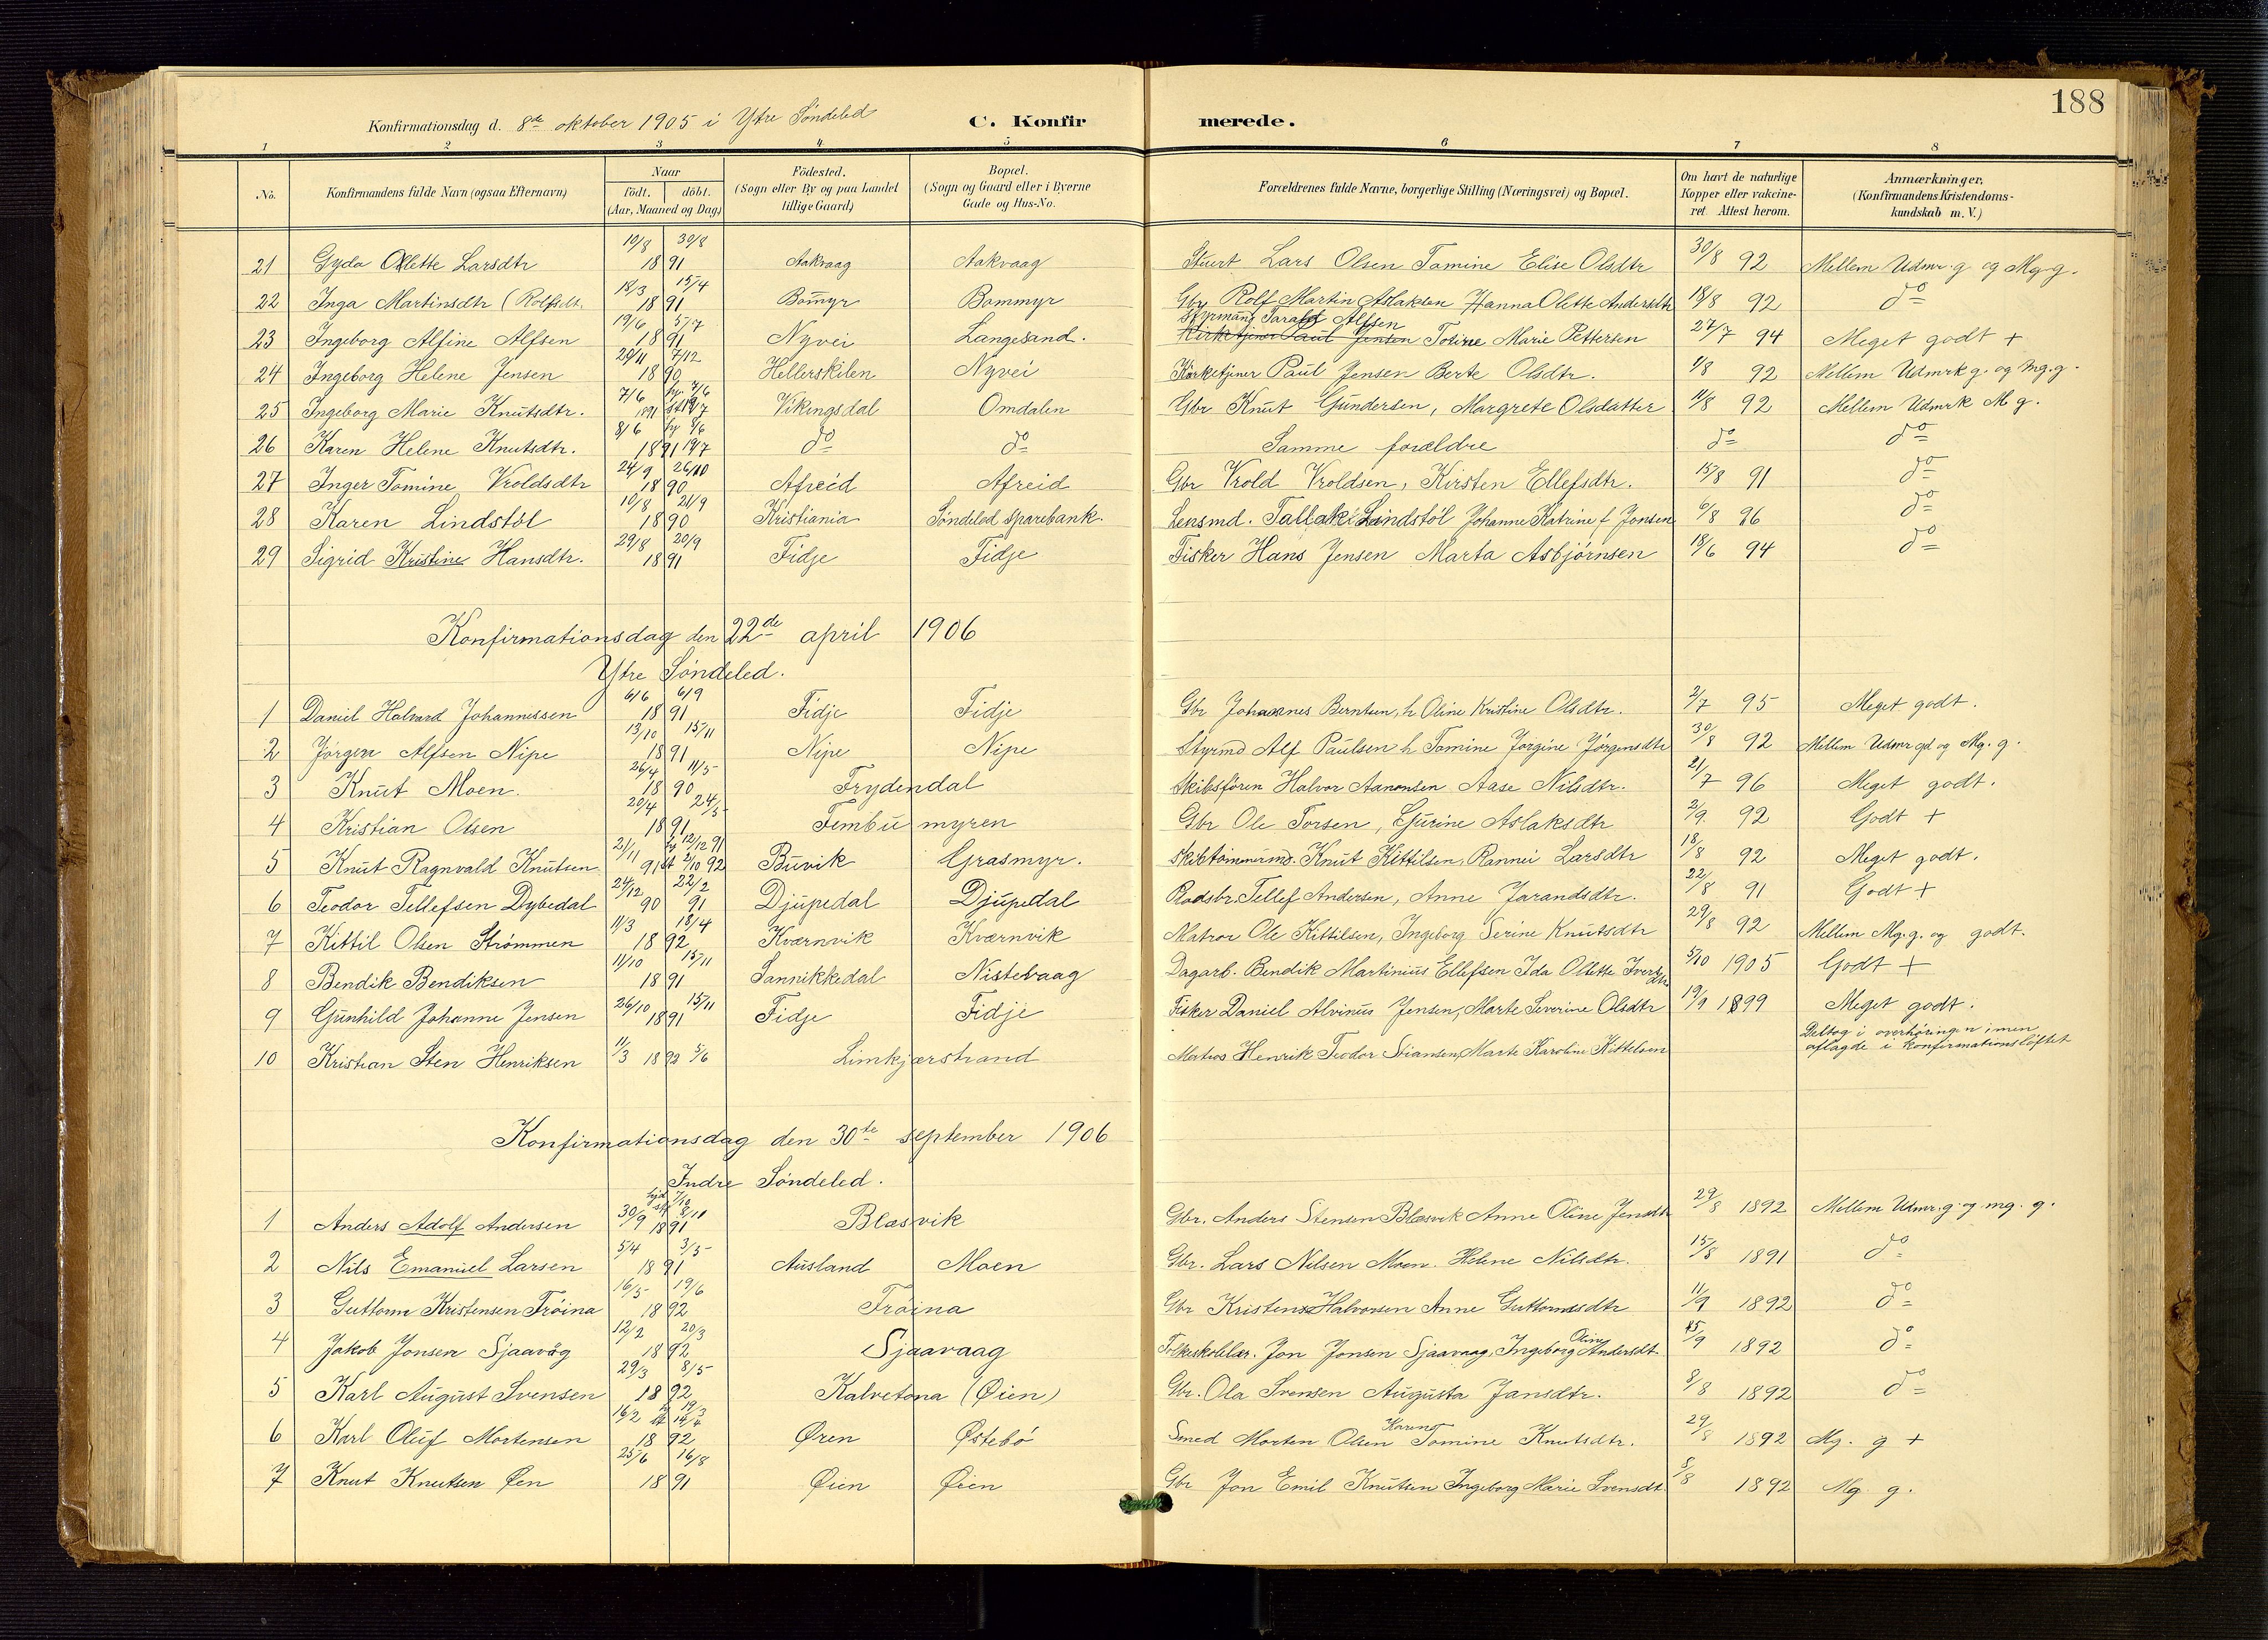 188
Konfirmationsdag d. 8de oktober 1905 i Ytre Söndeled C. Konfirmerede.
1 2 3 4 5 6 7 8
No. Konfirmandens fulde Navn (ogsaa Efternavn) Naar födt. döbt. (Aar, Maaned og Dag) Födested. (Sogn eller By og paa Landet tillige Gaard) Bopæl. (Sogn og Gaard eller i Byerne Gade og Hus-No. Forældrenes fulde Navne, borgerlige Stilling (Næringsvei) og Bopæl. Om havt de naturlige Kopper eller vakcineret. Attest herom. Anmærkninger. (Konfirmandens Kristendomskundskab m. V.)
21 Gyda Olette Larsdtr 10/8 30/8 1891 Aakvaag Aakvaag Lars Olsen Tomine Elise Olsdtr 30/8 92 Mellem Udmr. g og Mg. g.
22 Inga Martinsdtr (Rolfsdt. 18/3 15/4 1891 Bommyr Bommyr Gbr Rolf Martin Aslaksen Hanna Olette Andersdtr 18/8 92 do
23 Ingeborg Alfine Alfsen 19/6 5/7 1891 Nyvei Langesand. Styrmand Tarald Alfsen Kirketjener Paul Jensen Tosine Marie Pettersen 27/7 94 Meget godt +
24 Ingeborg Helene Jensen 29/11 7/12 1890 Hellerskilen Nyvei Kirketjener Paul Jensen Berte Olsdtr. 1/8 92 Mellem Udmrk g. og Mg. g.
25 Ingeborg Marie Knutsdtr. 7/6 1891 19/7 Vikingsdal Omdalen Gbr Knut Gundersen, Margrete Olsdatter 11/8 92 Mellem Udmrk M g.
26 Karen Helene Knutsdtr. 8/6 1891 19/7 do do Samme forældre do do
27 Inger Tomine Vroldsdtr 24/9 26/10 1890 Afreid Afreid Gbr Vrold Vroldsen, Kirsten Ellefsdtr. 15/8 91 do
28 Karen Lindstöl 10/8 21/9 1890 Kristiania Söndeled Sparebank. Lensmd. Tallak Lindstöl Johanne Katrine f Jonsen 6/8 96 do
29 Sigrid Kristine Hansdtr. 29/8 20/9 1891 Fidje Fidje Fisker Hans Jensen Marta Asbjörnsen 18/6 94 do
Konfirmationsdag den 22de april 1906
Ytre Söndeled.
1 Daniel Halvard Johannessen 6/6 6/9 1891 Fidje Fidje Gbr Johannes Berntsen, h Oline Kristine Olsdtr. 2/7 95 Meget godt.
2 Jörgen Alfsen Nipe 13/10 15/11 1891 Nipe Nipe Styrmd Alf Paulsen h Tomine Jörgine Jörgensdtr 30/8 92 Mellem Udmr gd og Mg. g.
3 Knut Moen. 26/4 11/5 1890 Frydendal Skibsfören Halvor Aanonsen Aase Nilsdtr. 21/7 96 Meget godt.
4 Kristian Olsen 20/4 24/5 1891 Tembumyren Gbr Ole Torsen, Gurine Aslaksdtr 2/9. 92 Godt +
5 Knut Ragnvald Knutsen 21/11 91 12/12 91 2/10 92 Buvik Grasmyr. Skibstömmermd. Knut Kittilsen, Rannei Larsdtr 18/8 92 Meget godt.
6 Teodor Tellefsen Dybedal 24/12 90 22/2 91 Djupedal Djupedal Rodsbr. Tellef Andersen, Anne Jarandsdtr. 22/8 91 Godt +
7 Kittil Olsen Strömmen 11/3 18/4 1892 Kværnvik Kværnvik Matros Ole Kittilsen, Ingeborg Serine Knutsdtr 29/8 92 Mellem Mg. g. og godt.
8 Bendik Bendiksen 11/10 15/11 1891 Sannikkedal Nistebaag Dagarb. Bendik Martinius Ellefsen Ida Olette Iversdtr 5/10 1905 Godt +
9 Gunhild Johanne Jensen 26/10 15/11 1891 Fidje Fidje Fisker Daniel Alvinus Jensen, Marte Severine Olsdtr 19/9 1899 Meget godt.
10 Kristian Sten Henriksen 11/3 1892 5/6 Limkjærstrand Matros Henrik Teodor Stiansen, Marte Karoline Kittelsen Deltog i overhöringen, men aflagde i konfirmationslöftet
Konfirmationsdag den 30te september 1906
Indre Söndeled.
1 Anders Adolf Andersen 30/9 8/11 1891 Blæsvik Gbr. Anders Stensen Blæsvik Anne Oline Jensdt 29/8 1892 Mellem Udmr. g. og mg. g.
2 Nils Emanuel Larsen 5/4 3/5 1891 Ausland Moen Gbr. Lars Nilsen Moen. Helene Nilsdtr. 15/8 1891 do
3 Guttorm Kristensen Tröina 16/5 19/6 1892 Tröina Gbr Kristens Halvorsen Anne Guttormsdtr 11/9 1892 do
4 Jakob Jonsen Sjaavåg 12/2 20/3 1892 Sjaavaag Folkeskolelær. Jon Jonsen Sjaavaag, Ingeborg Oline Andersdt. 15/9 1892 do
5 Karl August Svensen 29/3 8/5 1892 Kalvetona (Øien) Gbr. Ola Svensen Augusta Jansdtr. 8/8 1892 do
6 Karl Oluf Mortensen 16/2 19/3 1892 Ören Östebö Smed Morten Olsen Karen Tomine Knutsdtr. 29/8 1892 Mg. g +
7 Knut Knutsen Øen 25/6 16/8 1891 Øien Øien Gbr Jon Emil Knutsen Ingeborg Marie Svensdt 8/8 1892 Mg. g.